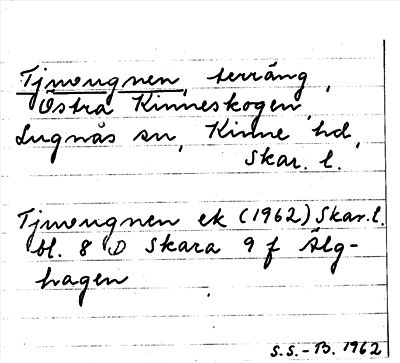 Tjuvugnen, terräng,
Östra Kinneskogen,
Lugnås sn, Kinne hd,
Skar. l.
Tjuvugnen ek (1962) Skar. l.
bl. 8 D Skara 9 f Älg-
hagen
S.S.-B. 1962